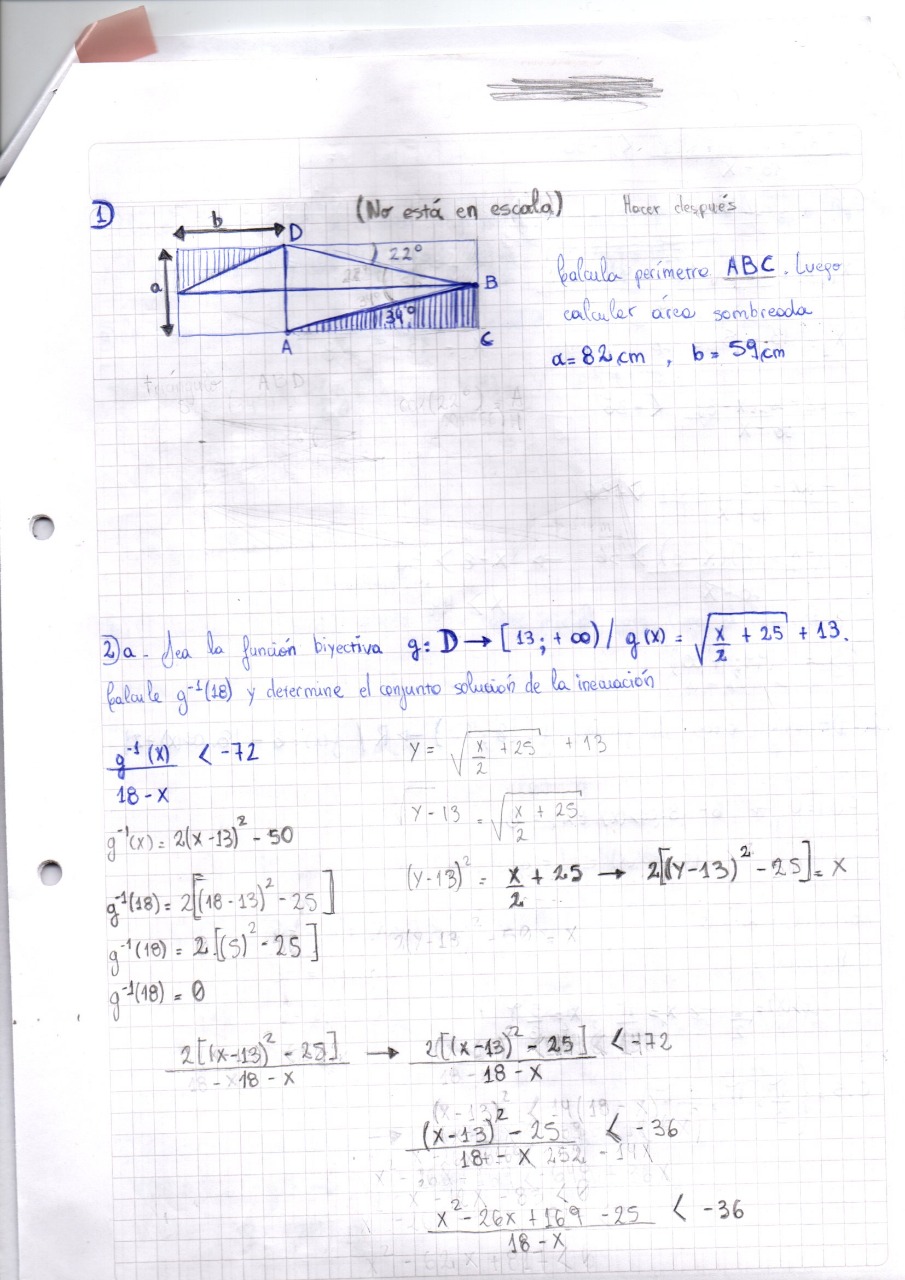 1) (No está en escala) Hacer después
b
D
22°
a
B
34°
A
C
Calcula perímetro ABC. Luego
calcular área sombreada
a = 82 cm , b = 59 cm
2)a - Sea la función biyectiva g: D → [13; +∞) / g(x) = √(x/2 + 25) + 13.
Calcule g⁻¹(18) y determine el conjunto solución de la inecuación
g⁻¹(x)/(18-x) < -72
Y = √(x/2 + 25) + 13
Y - 13 = √(x/2 + 25)
g⁻¹(x) = 2(x-13)² - 50
(Y-13)² = x/2 + 25 → 2[(Y-13)² - 25] = x
g⁻¹(18) = 2[(18-13)² - 25]
g⁻¹(18) = 2.[(5)² - 25]
g⁻¹(18) = 0
2[(x-13)² - 25]/(18 - x) → 2[(x-13)² - 25]/(18 - x) < -72
((x-13)² - 25)/(18 - x) < -36
(x² - 26x + 169 - 25)/(18 - x) < -36